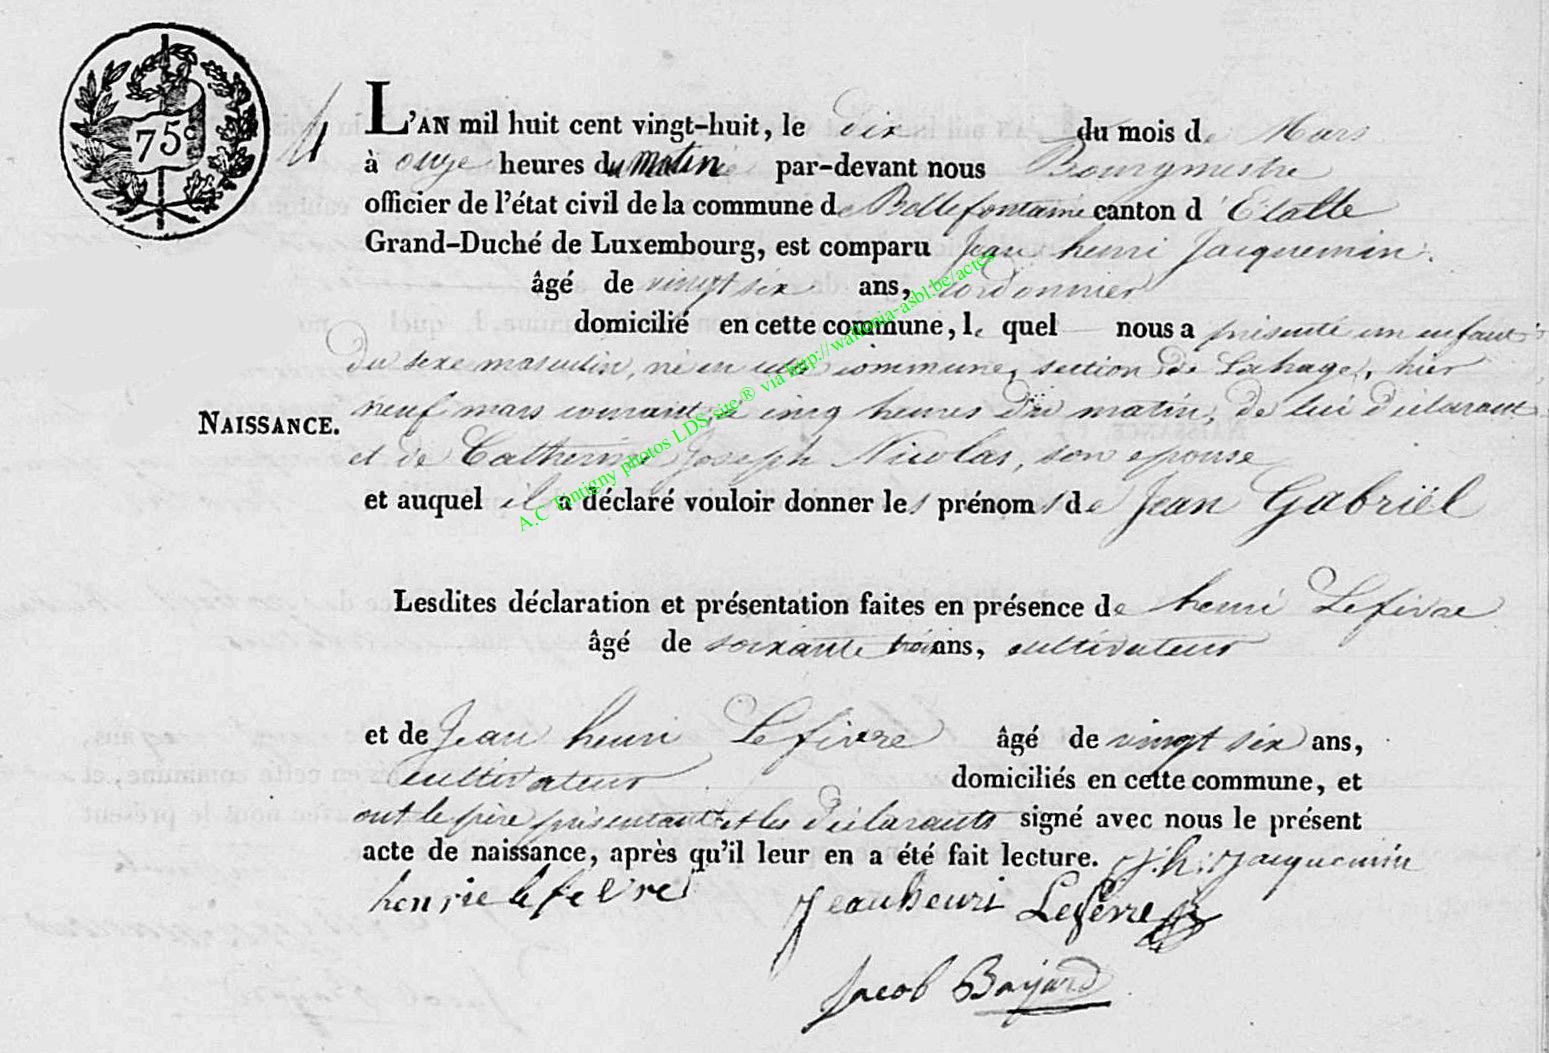 75c
4
L'AN mil huit cent vingt-huit, le dix du mois de Mars
à onze heures du matin par-devant nous Bourgmestre
officier de l'état civil de la commune de Bellefontaine canton d'Etalle
Grand-Duché de Luxembourg, est comparu Jean henri Jacquemin
âgé de vingt six ans, cordonnier
domicilié en cette commune, le quel nous a présenté un enfant
du sexe masculin, né en cette commune, section de Lahage, hier
NAISSANCE.
neuf mars courant, à cinq heures du matin, de lui déclarant
et de Catherine Joseph Nicolas, son epouse
et auquel il a déclaré vouloir donner les prénoms de Jean Gabriël
Lesdites déclaration et présentation faites en présence de henri Lefivre
âgé de soixante trois ans, cultivateur
et de Jean henri Lefivre âgé de vingt six ans,
cultivateur domiciliés en cette commune, et
ont le père présentant et les déclarants signé avec nous le présent
acte de naissance, après qu'il leur en a été fait lecture. J.h. Jacquemin
henrie lefevre Jean henri Lefèvre
Jacob Bajard
A.C Tintigny photos LDS site ® via http://wallonia-asbl.be/actes